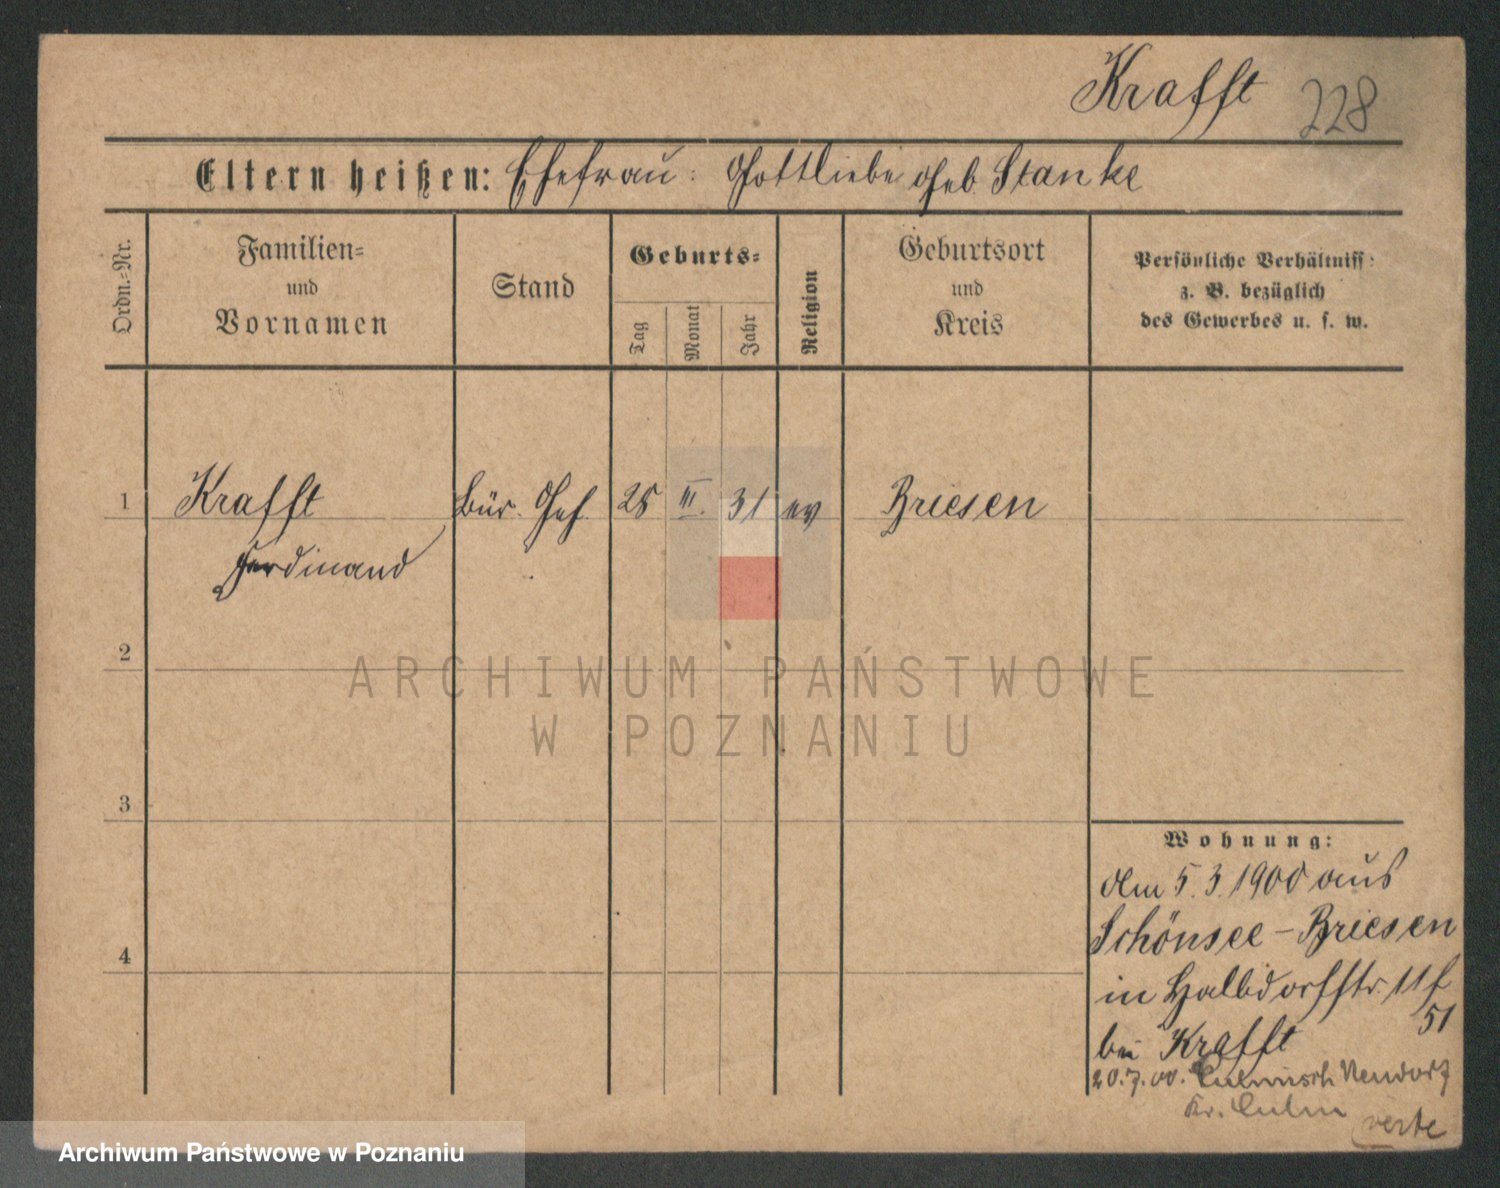 Krafft 228
Eltern heißen: Ehefrau: Gottliebe geb Stanke
Ordn.-Nr.
Familien- und Vornamen
Stand
Geburts-
Tag
Monat
Jahr
Religion
Geburtsort und Kreis
Persönliche Verhältniss:
z. B. bezüglich
des Gewerbes u. s. w.
1 Krafft Bür. 25 III. 31 ev Briesen
Ferdinand
2
ARCHIWUM PAŃSTWOWE
W POZNANIU
3
4
Wohnung:
Am 5.3.1900 aus
Schönsee-Briesen
in Halbdorfstr. 11f
51
bei Krafft
20.7.00. Culmisch Neudorf
Kr. Culm
verte
Archiwum Państwowe w Poznaniu